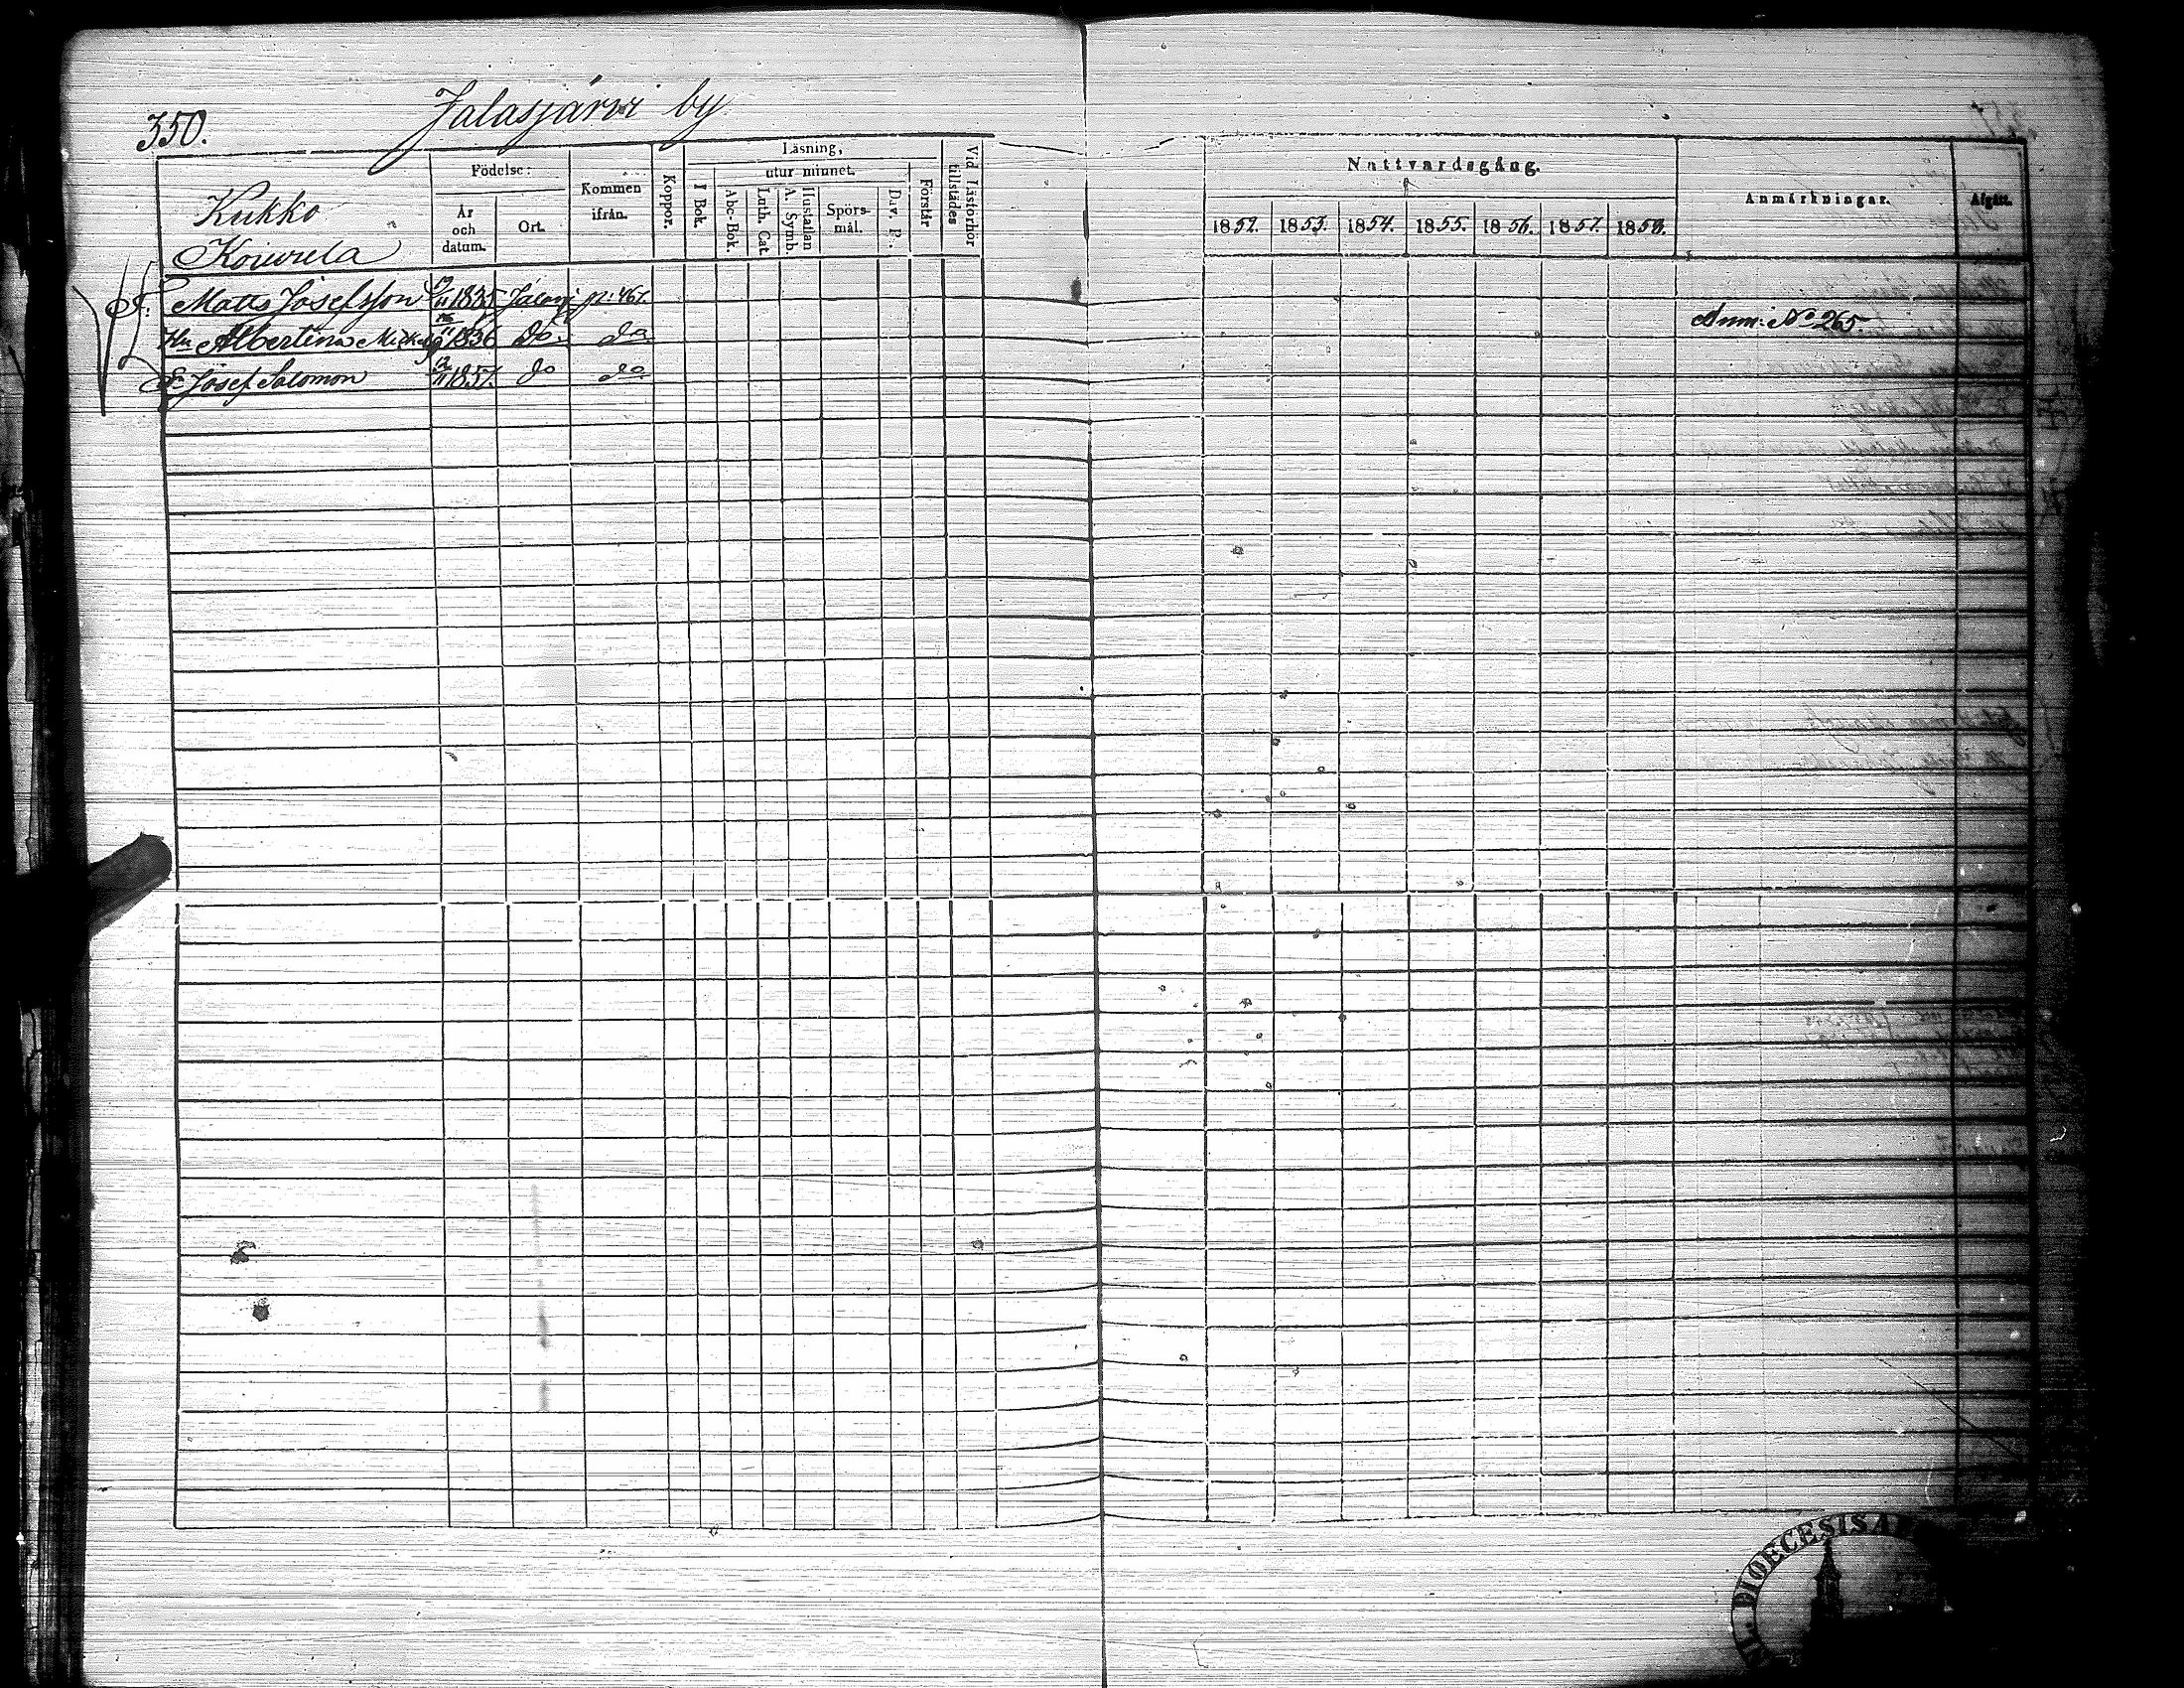 350.
Jalasjärvi by
Kukko
Koivula
Födelse:
År och datum.
Ort.
Kommen ifrån.
Koppor.
Läsning,
I Bok.
utur minnet.
Abc-Bok.
Luth. Cat.
A. Symb. Hustaflan
Spörsmål.
Dav. P.
Förstår
Vid Läsförhör tillstädes
Nattvardsgång.
1852. 1853. 1854. 1855. 1856. 1857. 1858.
Anmärkningar.
Afgått.
Matts Josefsson 11 1835 Jalasj p: 467.
Anm: No 265.
Hu Albertina 11 1836 Do. do
Josef Salomon 12/11 1857. do do
DIOECESIS A